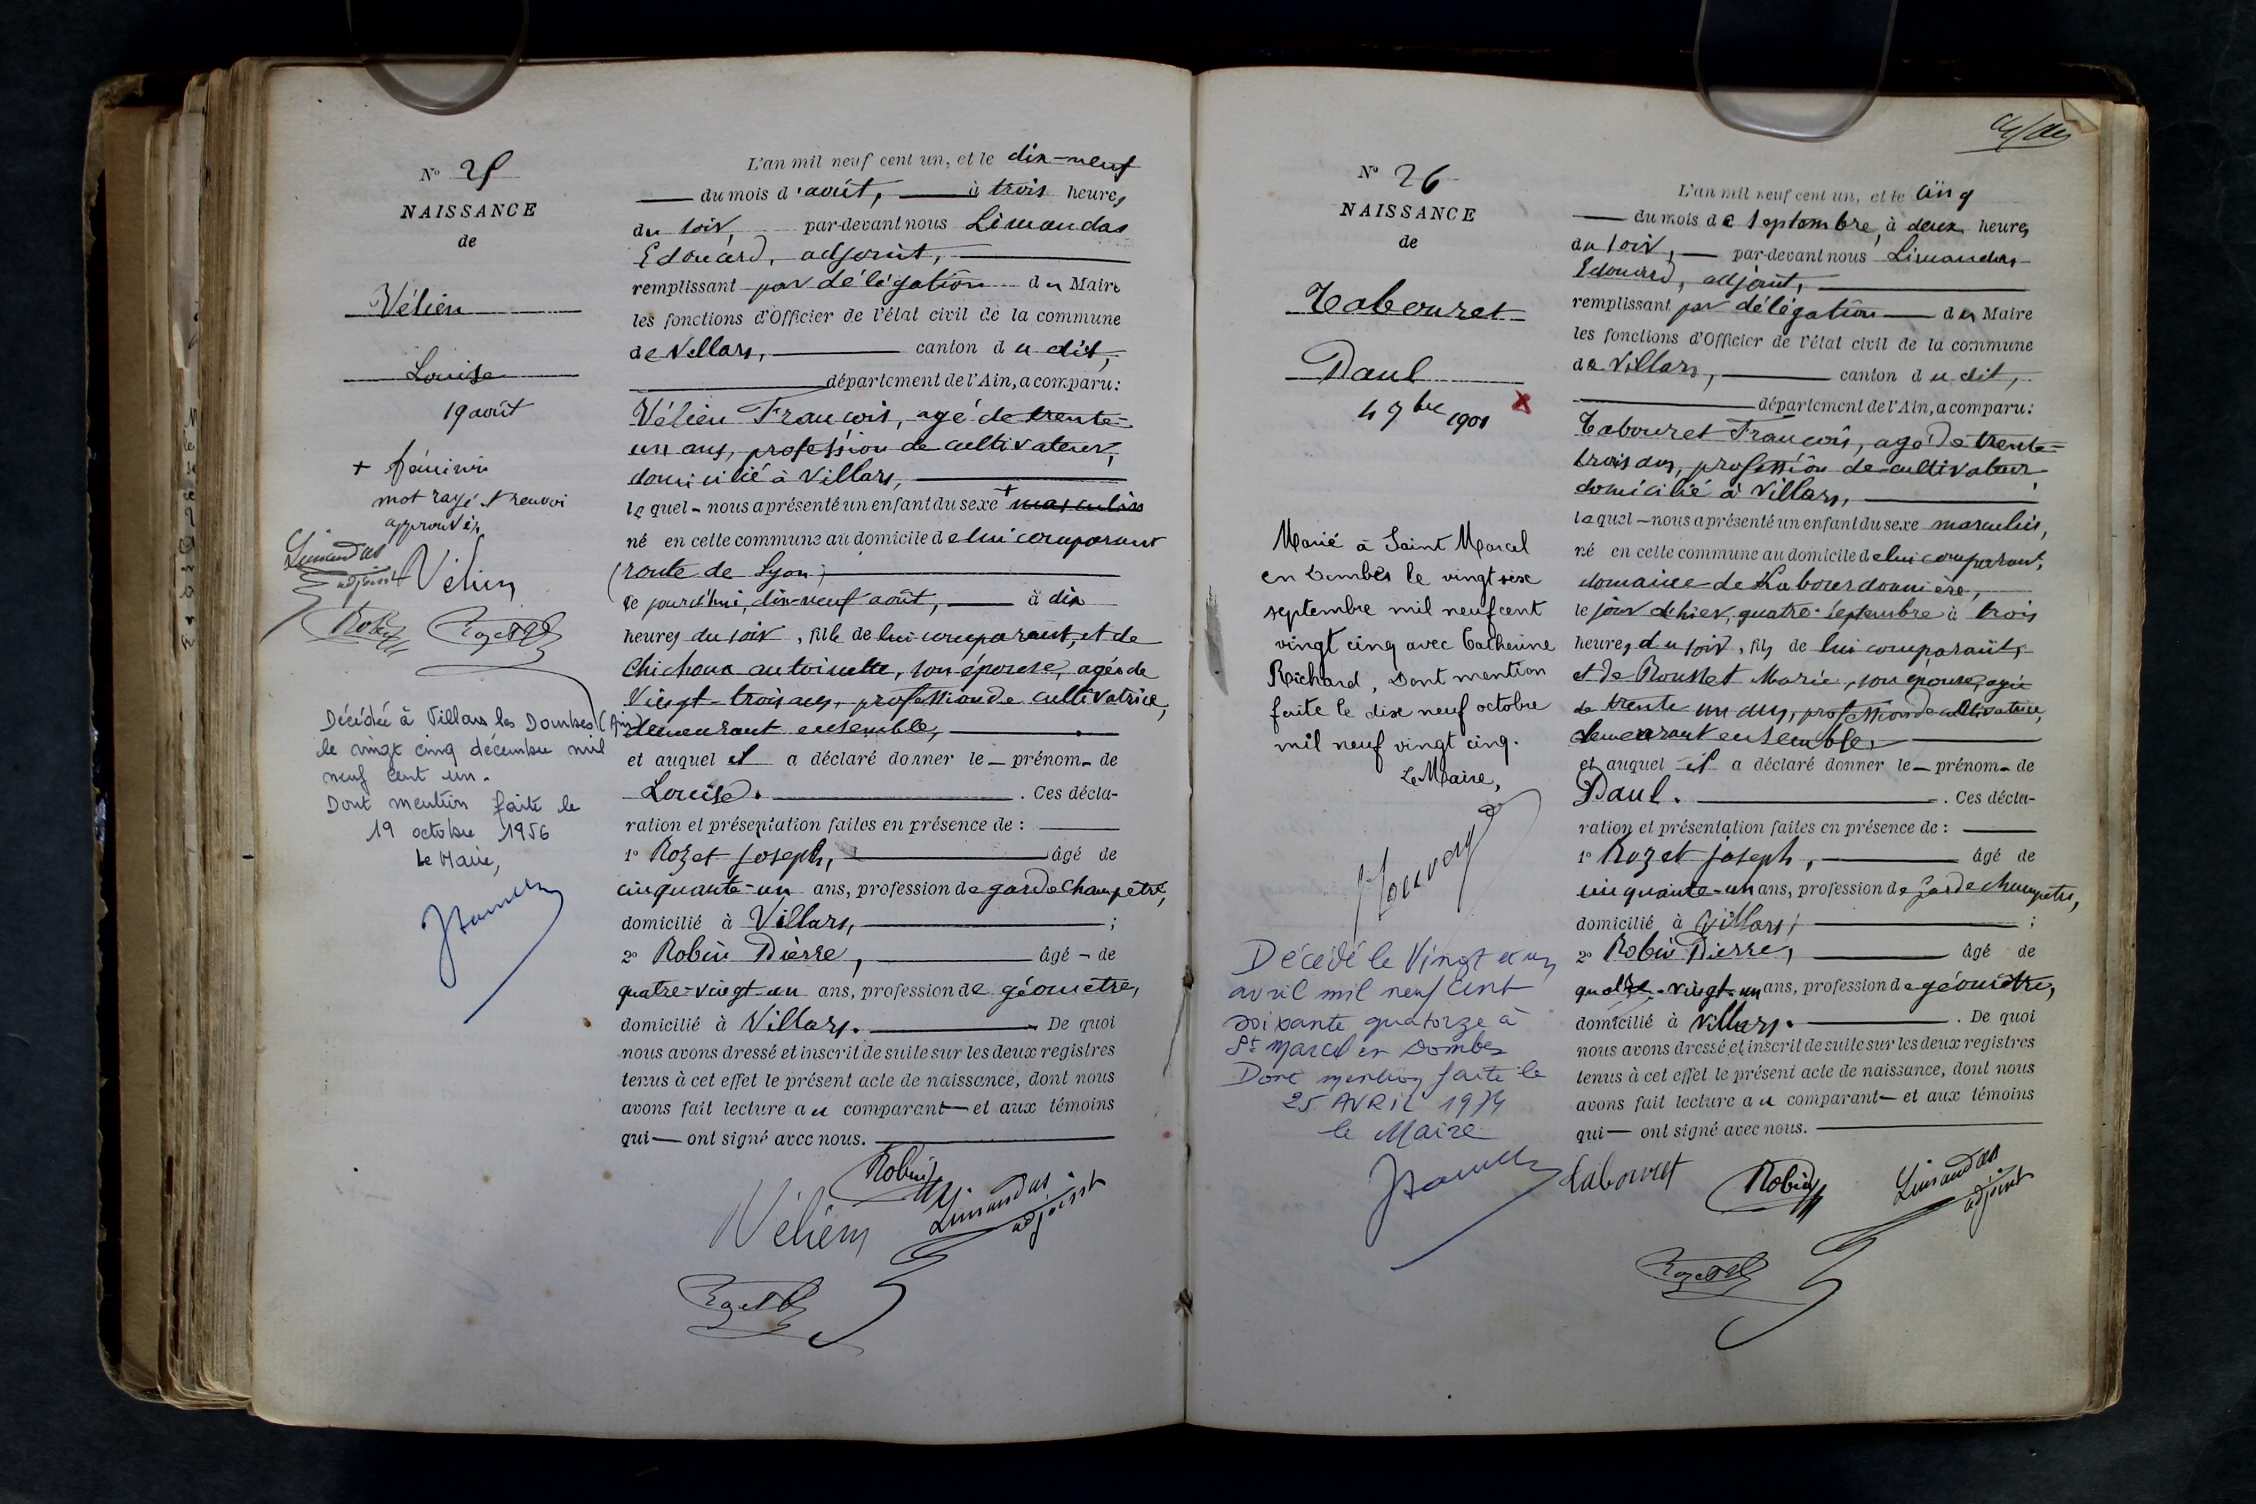 N° 25
NAISSANCE
de
Vélien
Louise
19 août
+ féminin
mot rayé & renvoi
approuvés
Limandas
adjoint Vélien
Robin Rozet
Décédée à Villars les Dombes (Ain)
le vingt cinq décembre mil
neuf cent un.
Dont mention faite le
19 octobre 1956
Le Maire,
L'an mil neuf cent un, et le dix-neuf
du mois d'août, à trois heures
du soir, par-devant nous Limandas
Edouard, adjoint,
remplissant par délégation du Maire
les fonctions d'Officier de l'état civil de la commune
de Villars, canton du dit,
département de l'Ain, a comparu:
Vélien François, agé de trente-
un ans, profession de cultivateur,
domicilié à Villars,
lequel - nous a présenté un enfant du sexe + masculin
né en cette commune au domicile de lui comparant
(route de Lyon)
ce jourd'hui, dix-neuf août, à dix
heures du soir, fille de lui comparant, et de
Chichoux antoinette, son épouse, agée de
Vingt-trois ans, profession de cultivatrice,
demeurant ensemble,
et auquel il a déclaré donner le - prénom - de
Louise. . Ces décla-
ration et présentation faites en présence de :
1° Rozet Joseph, âgé de
cinquante-un ans, profession de garde champêtre,
domicilié à Villars, ;
2° Robin Pierre, âgé - de
quatre-vingt-un ans, profession de géomètre,
domicilié à Villars. De quoi
nous avons dressé et inscrit de suite sur les deux registres
tenus à cet effet le présent acte de naissance, dont nous
avons fait lecture au comparant - et aux témoins
qui - ont signé avec nous.
Robin
Vélien Limandas
adjoint
Rozet
N° 26
NAISSANCE
de
Tabouret
Paul
4 7bre 1901
Marié à Saint Marcel
en Dombes le vingt six
septembre mil neuf cent
vingt cinq avec Catherine
Richard, Dont mention
faite le dix neuf octobre
mil neuf vingt cinq.
Le Maire,
Décédé le Vingt et un
avril mil neuf cent
soixante quatorze à
St Marcel en Dombes
Dont mention faite le
25 AVRIL 1974
le Maire
L'an mil neuf cent un, et le cinq
du mois de septembre, à deux heures
du soir, par-devant nous Limandas
Edouard, adjoint,
remplissant par délégation du Maire
les fonctions d'Officier de l'état civil de la commune
de Villars, canton du dit,
département de l'Ain, a comparu:
Tabouret François, agé de trente-
trois ans, profession de cultivateur,
domicilié à Villars,
lequel - nous a présenté un enfant du sexe masculin,
né en cette commune au domicile de lui comparant,
domaine de Labourdonnière,
le jour d'hier, quatre septembre à trois
heures du soir, fils de lui comparant,
et de Rousset Marie, son épouse, agée
de trente un ans, profession de cultivatrice,
demeurant ensemble,
et auquel il a déclaré donner le - prénom - de
Paul. . Ces décla-
ration et présentation faites en présence de :
1° Rozet Joseph, âgé de
cinquante-un ans, profession de garde champêtre,
domicilié à Villars, ;
2° Robin Pierre, âgé de
quatre-vingt-un ans, profession de géomètre,
domicilié à Villars. . De quoi
nous avons dressé et inscrit de suite sur les deux registres
tenus à cet effet le présent acte de naissance, dont nous
avons fait lecture au comparant - et aux témoins
qui - ont signé avec nous.
Tabouret Robin Limandas
adjoint
Rozet